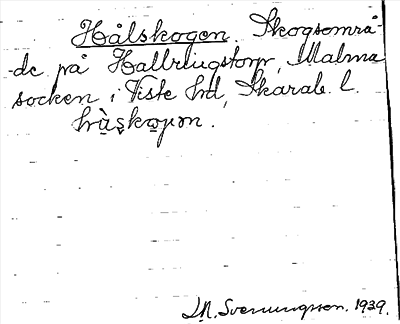 Hålskogen. Skogsområ-
de på Hallbringstorp, Malma
socken i Viste hd, Skarab. l.
Sveningsson. 1939.